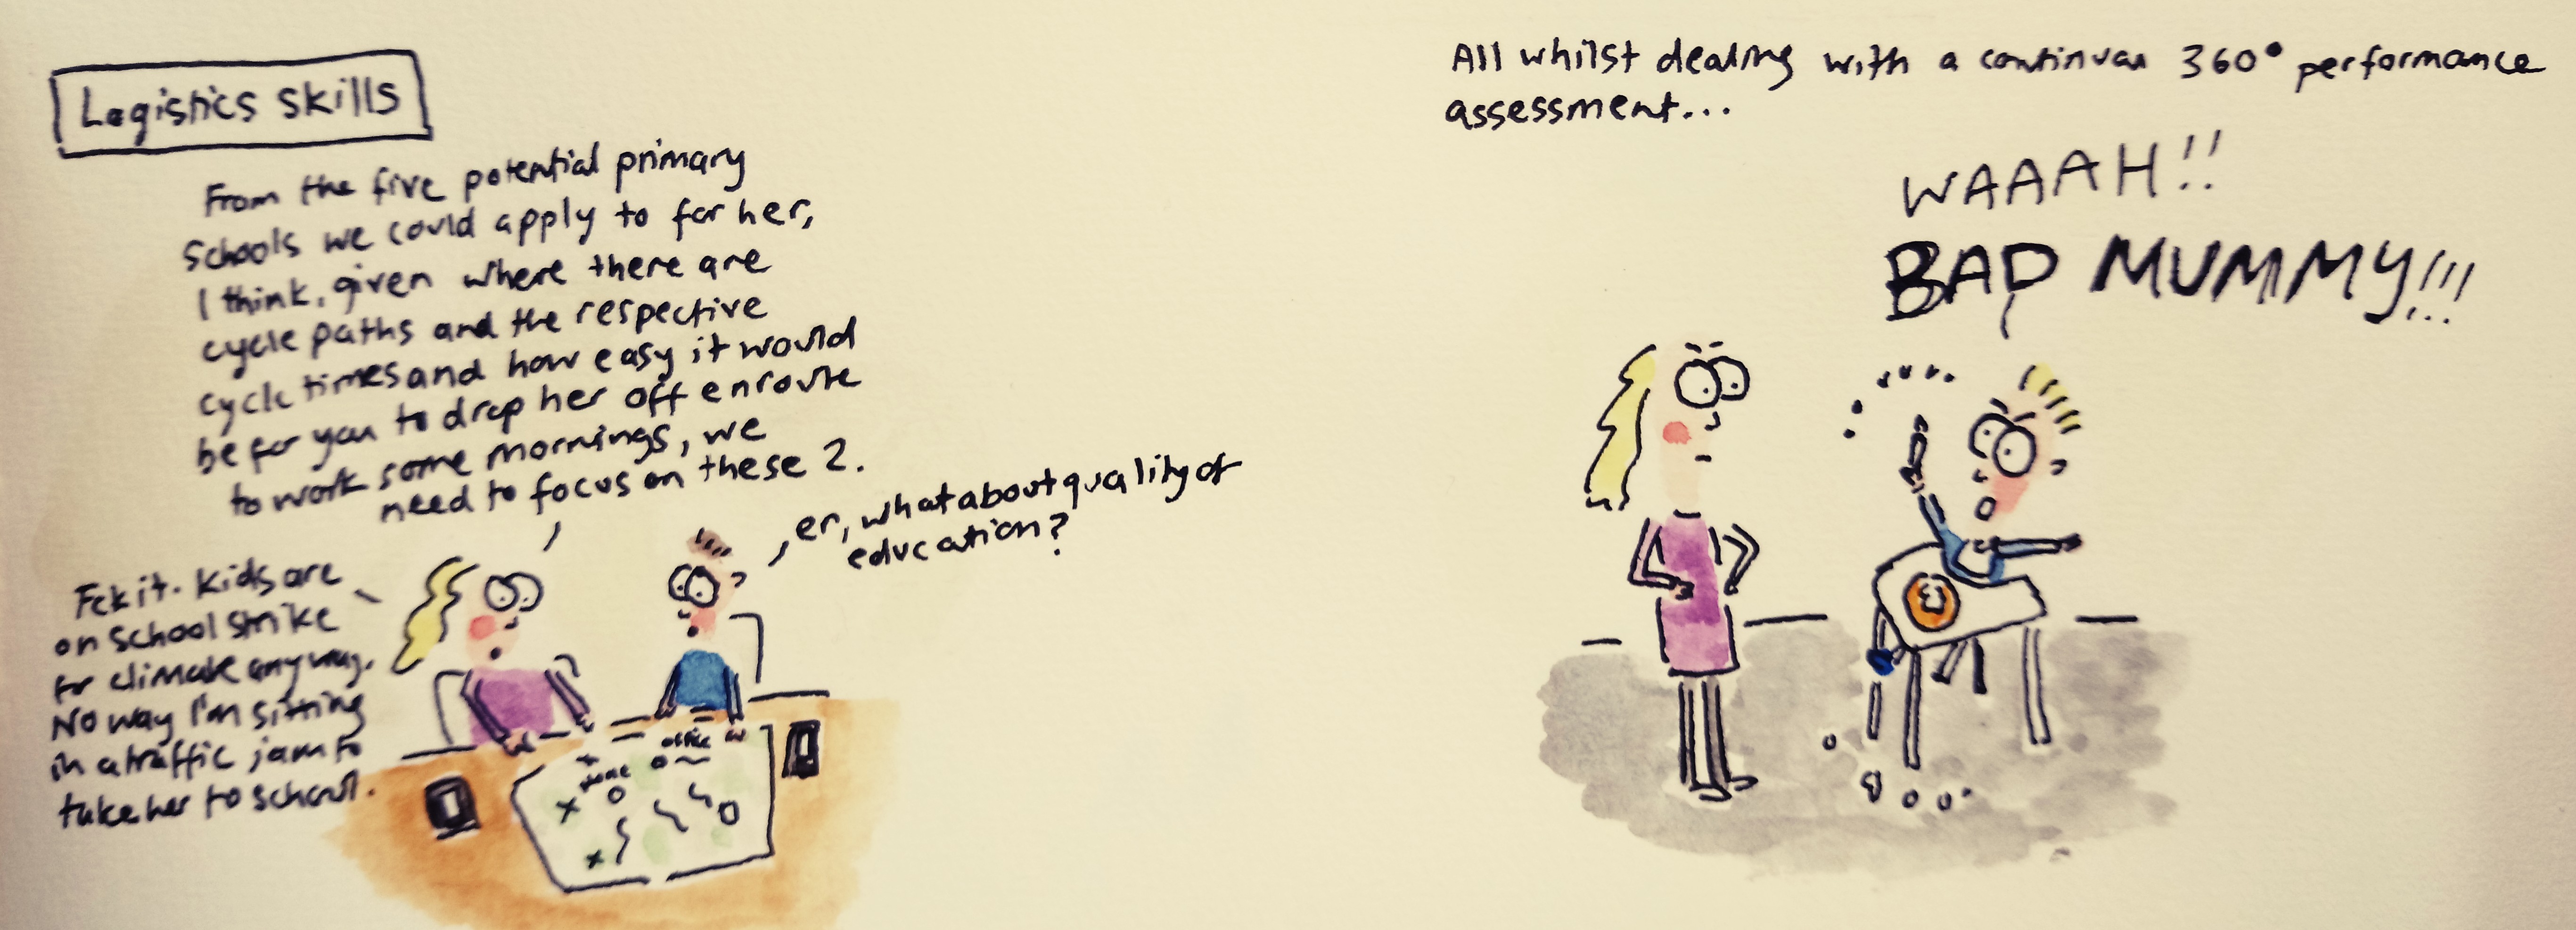 Logistics skills
From the five potential primary
schools we could apply to for her,
I think, given where there are
cycle paths and the respective
cycle times and how easy it would
be for you to drop her off enroute
to work some mornings, we
need to focus on these 2.
er, what about quality of
education?
Fck it. Kids are
on school strike
for climate anyway.
No way I'm sitting
in a traffic jam to
take her to school.
home
office
All whilst dealing with a continual 360° performance
assessment...
WAAAH!!
BAD MUMMY!!!